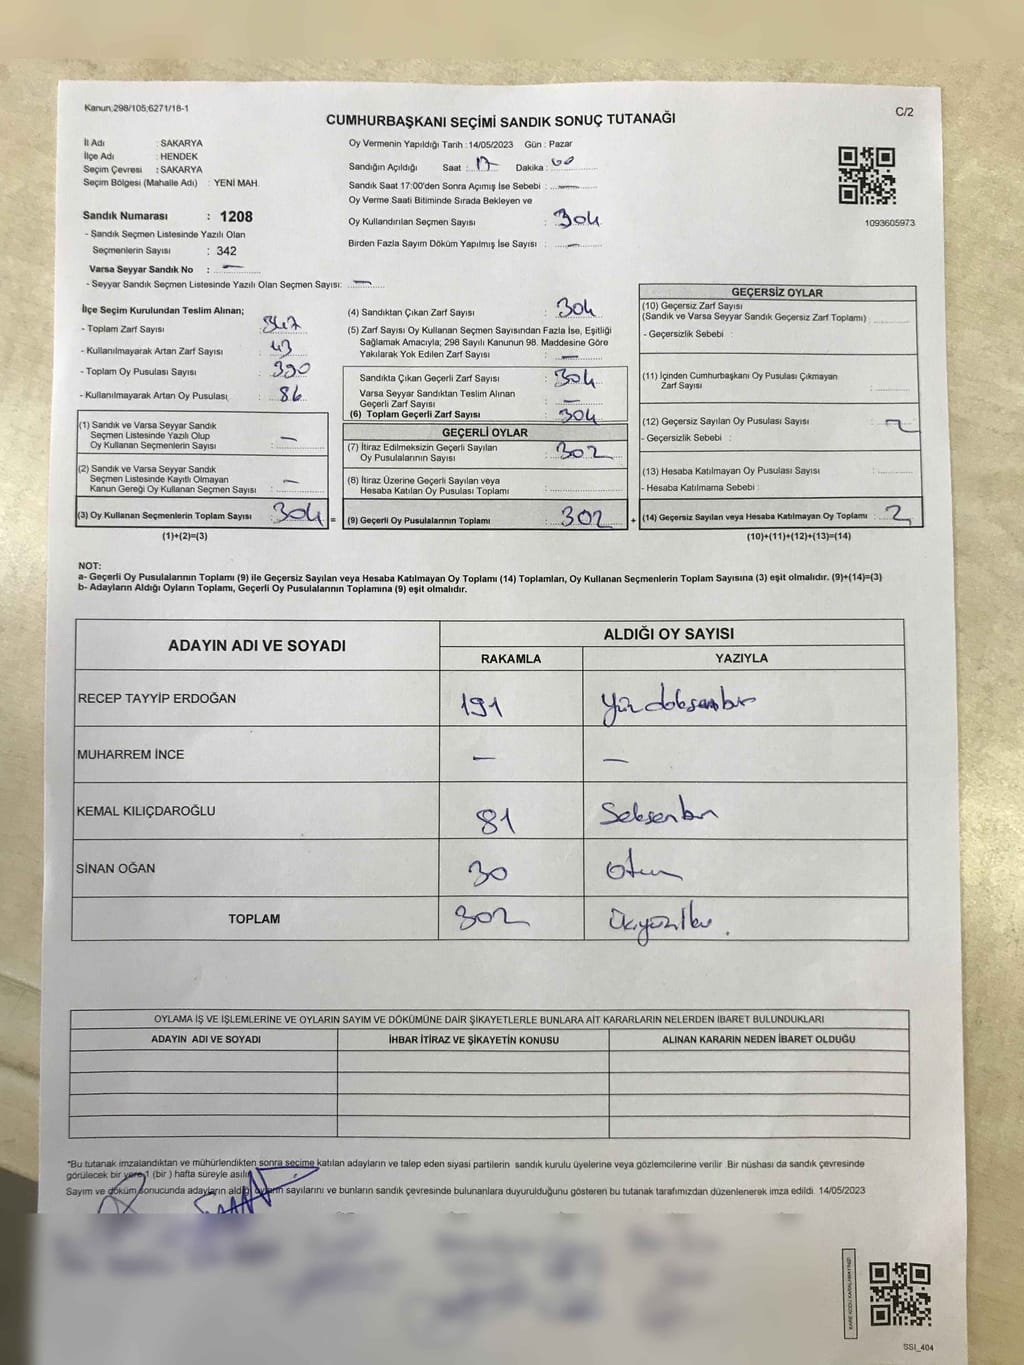 Kanun;298/105;6271/18-1
C/2
CUMHURBAŞKANI SEÇİMİ SANDIK SONUÇ TUTANAĞI
İl Adı : SAKARYA
İlçe Adı : HENDEK
Seçim Çevresi : SAKARYA
Seçim Bölgesi (Mahalle Adı) : YENİ MAH.
Sandık Numarası : 1208
- Sandık Seçmen Listesinde Yazılı Olan
Seçmenlerin Sayısı : 342
Varsa Seyyar Sandık No : —
- Seyyar Sandık Seçmen Listesinde Yazılı Olan Seçmen Sayısı: —
Oy Vermenin Yapıldığı Tarih : 14/05/2023 Gün : Pazar
Sandığın Açıldığı Saat : 17 Dakika : 00
Sandık Saat 17:00'den Sonra Açımış İse Sebebi : —
Oy Verme Saati Bitiminde Sırada Bekleyen ve
Oy Kullandırılan Seçmen Sayısı : 304
Birden Fazla Sayım Döküm Yapılmış İse Sayısı : —
1093605973
İlçe Seçim Kurulundan Teslim Alınan;
- Toplam Zarf Sayısı : 347
- Kullanılmayarak Artan Zarf Sayısı : 43
- Toplam Oy Pusulası Sayısı : 390
- Kullanılmayarak Artan Oy Pusulası : 86
(1) Sandık ve Varsa Seyyar Sandık
Seçmen Listesinde Yazılı Olup
Oy Kullanan Seçmenlerin Sayısı : —
(2) Sandık ve Varsa Seyyar Sandık
Seçmen Listesinde Kayıtlı Olmayan
Kanun Gereği Oy Kullanan Seçmen Sayısı : —
(3) Oy Kullanan Seçmenlerin Toplam Sayısı : 304 =
(1)+(2)=(3)
(4) Sandıktan Çıkan Zarf Sayısı : 304
(5) Zarf Sayısı Oy Kullanan Seçmen Sayısından Fazla İse, Eşitliği
Sağlamak Amacıyla; 298 Sayılı Kanunun 98. Maddesine Göre
Yakılarak Yok Edilen Zarf Sayısı : —
Sandıkta Çıkan Geçerli Zarf Sayısı : 304
Varsa Seyyar Sandıktan Teslim Alınan
Geçerli Zarf Sayısı : —
(6) Toplam Geçerli Zarf Sayısı : 304
GEÇERLİ OYLAR
(7) İtiraz Edilmeksizin Geçerli Sayılan
Oy Pusulalarının Sayısı : 302
(8) İtiraz Üzerine Geçerli Sayılan veya
Hesaba Katılan Oy Pusulası Toplamı :
(9) Geçerli Oy Pusulalarının Toplamı : 302 +
GEÇERSİZ OYLAR
(10) Geçersiz Zarf Sayısı
(Sandık ve Varsa Seyyar Sandık Geçersiz Zarf Toplamı) :
- Geçersizlik Sebebi :
(11) İçinden Cumhurbaşkanı Oy Pusulası Çıkmayan
Zarf Sayısı :
(12) Geçersiz Sayılan Oy Pusulası Sayısı : 2
- Geçersizlik Sebebi :
(13) Hesaba Katılmayan Oy Pusulası Sayısı :
- Hesaba Katılmama Sebebi :
(14) Geçersiz Sayılan veya Hesaba Katılmayan Oy Toplamı : 2
(10)+(11)+(12)+(13)=(14)
NOT:
a- Geçerli Oy Pusulalarının Toplamı (9) ile Geçersiz Sayılan veya Hesaba Katılmayan Oy Toplamı (14) Toplamları, Oy Kullanan Seçmenlerin Toplam Sayısına (3) eşit olmalıdır. (9)+(14)=(3)
b- Adayların Aldığı Oyların Toplamı, Geçerli Oy Pusulalarının Toplamına (9) eşit olmalıdır.
ADAYIN ADI VE SOYADI
ALDIĞI OY SAYISI
RAKAMLA YAZIYLA
RECEP TAYYİP ERDOĞAN 191 Yüz doksanbir
MUHARREM İNCE — —
KEMAL KILIÇDAROĞLU 81 Seksenbir
SİNAN OĞAN 30 Otuz
TOPLAM 302 Üçyüziki.
OYLAMA İŞ VE İŞLEMLERİNE VE OYLARIN SAYIM VE DÖKÜMÜNE DAİR ŞİKAYETLERLE BUNLARA AİT KARARLARIN NELERDEN İBARET BULUNDUKLARI
ADAYIN ADI VE SOYADI İHBAR İTİRAZ VE ŞİKAYETİN KONUSU ALINAN KARARIN NEDEN İBARET OLDUĞU
*Bu tutanak imzalandıktan ve mühürlendikten sonra seçime katılan adayların ve talep eden siyasi partilerin sandık kurulu üyelerine veya gözlemcilerine verilir. Bir nüshası da sandık çevresinde
görülecek bir yere 1 (bir ) hafta süreyle asılır.
Sayım ve döküm sonucunda adayların aldığı oyların sayılarını ve bunların sandık çevresinde bulunanlara duyurulduğunu gösteren bu tutanak tarafımızdan düzenlenerek imza edildi. 14/05/2023
KARE KODU KARALAMAYINIZ!
SSI_404